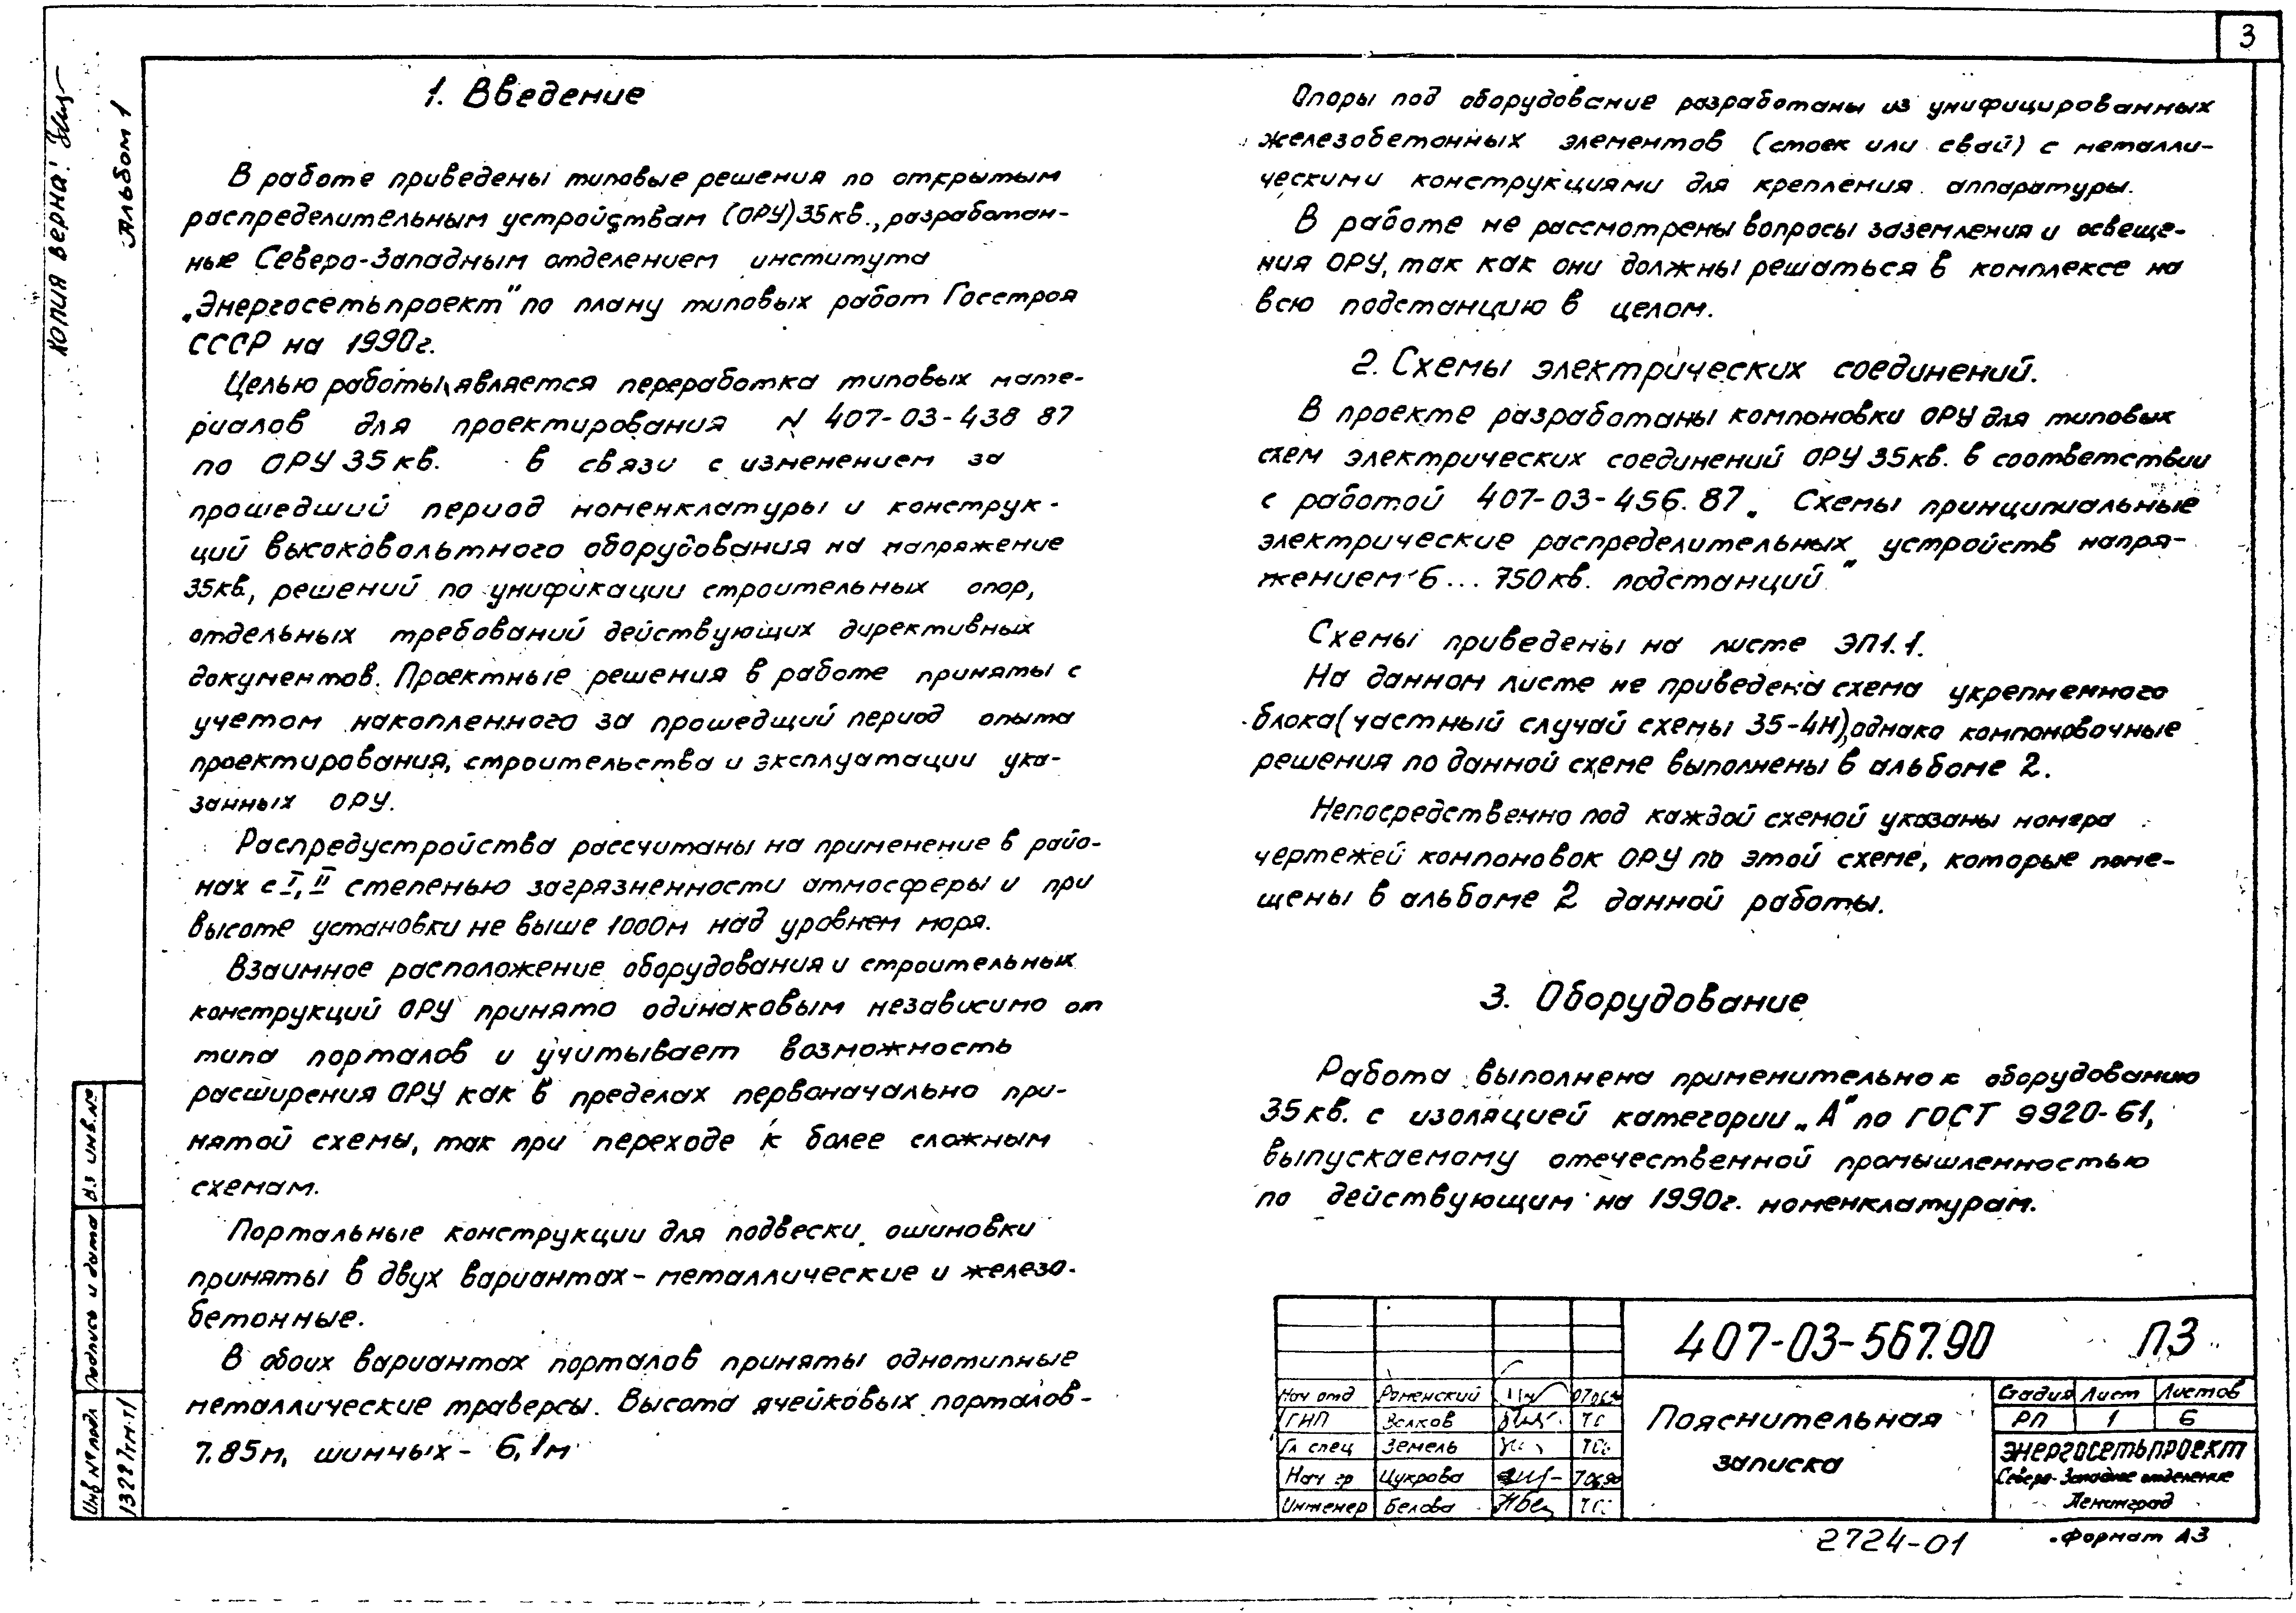 3
Копия верна:
Альбом 1
1. Введение
В работе приведены типовые решения по открытым
распределительным устройствам (ОРУ) 35кв., разработан-
ные Северо-Западным отделением института
„Энергосетьпроект" по плану типовых работ Госстроя
СССР на 1990г.
Целью работы является переработка типовых мате-
риалов для проектирования N 407-03-438 87
по ОРУ 35кв. в связи с изменением за
прошедший период номенклатуры и конструк-
ций высоковольтного оборудования на напряжение
35кв, решений по унификации строительных опор,
отдельных требований действующих директивных
документов. Проектные решения в работе приняты с
учетом накопленного за прошедщий период опыта
проектирования, строительства и эксплуатации ука-
занных ОРУ.
Распредустройства рассчитаны на применение в райо-
нах с I, II степенью загрязненности атмосферы и при
высоте установки не выше 1000м над уровнем моря.
Взаимное расположение оборудования и строительных
конструкций ОРУ принято одинаковым независимо от
типа порталов и учитывает возможность
расширения ОРУ как в пределах первоначально при-
нятой схемы, так при переходе к более сложным
схемам.
Портальные конструкции для подвески ошиновки
приняты в двух вариантах - металлические и железо-
бетонные.
В обоих вариантах порталов приняты однотипные
металлические траверсы. Высота ячейковых порталов-
7.85м, шинных - 6,1м
Опоры под оборудование разработаны из унифицированных
железобетонных элементов (стоек или свай) с металли-
ческими конструкциями для крепления аппаратуры.
В работе не рассмотрены вопросы заземления и освеще-
ния ОРУ, так как они должны решаться в комплексе на
всю подстанцию в целом.
2. Схемы электрических соединений.
В проекте разработаны компоновки ОРУ для типовых
схем электрических соединений ОРУ 35кв. в соответствии
с работой 407-03-456.87 „ Схемы принципиальные
электрические распределительных устройств напря-
жением 6 ... 750кв. подстанций "
Схемы приведены на листе ЭП1.1.
На данном листе не приведена схема укрепненного
блока (частный случай схемы 35-4Н), однако компоновочные
решения по данной схеме выполнены в альбоме 2.
Непосредственно под каждой схемой указаны номера
чертежей компоновок ОРУ по этой схеме, которые поме-
щены в альбоме 2 данной работы.
3. Оборудование
Работа выполнена применительно к оборудованию
35кв. с изоляцией категории „А" по ГОСТ 9920-61,
выпускаемому отечественной промышленностью
по действующим на 1990г. номенклатурам.
407-03-567.90 ПЗ
Нач отд Роменский
ГИП Волков
Гл спец Земель
Нач гр Цукрова
Инженер Белова
Пояснительная
записка
Стадия Лист Листов
РП 1 6
Энергосетьпроект
Северо-Западное отделение
Ленинград
2724-01
Формат А3
Вз инв.№
Подпись и дата
Инв № подл
1322тм-т1